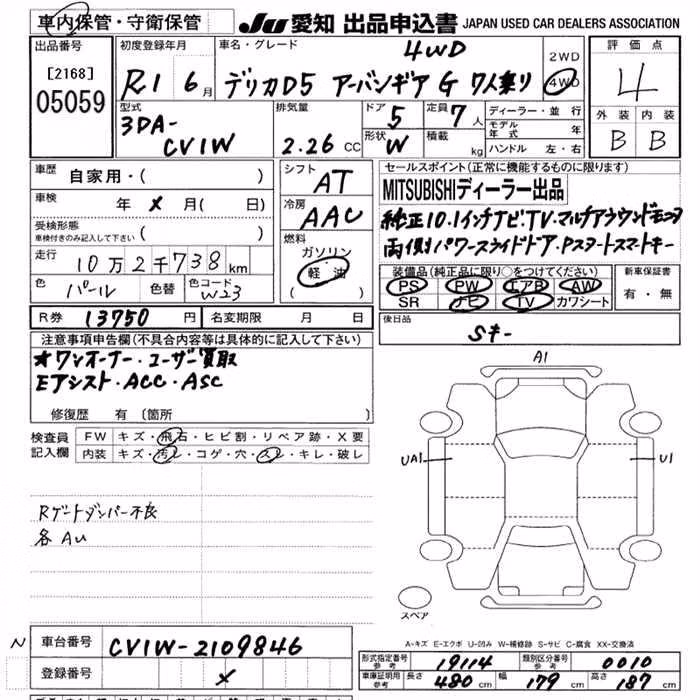 車内保管・守衛保管
JU 愛知 出品申込書 JAPAN USED CAR DEALERS ASSOCIATION
出品番号
[2168]
05059
初度登録年月
R1 6月
車名・グレード
4WD
デリカD5 アーバンギア G 7人乗り
2WD
4WD
評価点
4
外装 内装
B B
型式
3DA-
CV1W
排気量
2.26 CC
ドア 5
形状 W
定員 7人
積載 kg
ディーラー・並行
モデル年式 年
ハンドル 左・右
車歴
自家用・( )
車検
年 × 月( 日)
受検形態
車検付きのみ記入して下さい ( )
走行
10万2千738km
色 パール 色替 色コード W23
シフト
AT
冷房
AAC
燃料
ガソリン
軽油
( )
セールスポイント(正常に機能するものに限ります)
MITSUBISHIディーラー出品
純正10.1インチナビ.TV.マルチアラウンドモニタ
両側パワースライドドア.Pスタートスマートキー
装備品(純正品に限り○をつけてください)
PS PW エアB AW
SR ナビ TV カワシート
新車保証書
有・無
R券 13750 円 名変期限 月 日
後日品
Sキー
注意事項申告欄(不具合内容等は具体的に記入して下さい)
★ワンオーナー・ユーザー買取
Eアシスト・ACC・ASC
修復歴 有〔箇所 〕
検査員
記入欄
FW キズ・飛石・ヒビ割・リペア跡・X要
内装 キズ・汚レ・コゲ・穴・スレ・キレ・破レ
Rゲートダンパー不良
各AU
A1
UA1
U1
スペア
A-キズ E-エクボ U-凹み W-補修跡 S-サビ C-腐食 XX-交換済
N
車台番号 CV1W-2109846
登録番号 ×
形式指定番号 参考 19114 類別区分番号 参考 0010
車庫証明用 参考 長さ 480 cm 幅 179 cm 高さ 187 cm